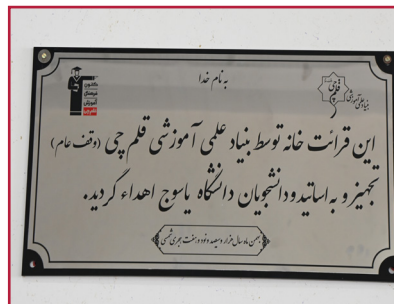 به نام خدا
کانون
فرهنگی
آموزش
قلم‌چی
بنیاد علمی آموزشی
قلم‌چی
این قرائت خانه توسط بنیاد علمی آموزشی قلم چی (وقف عام)
تجهیز و به اساتید و دانشجویان دانشگاه یاسوج اهداء گردید.
بهمن ماه سال هزار و سیصد و نود و هفت هجری شمسی